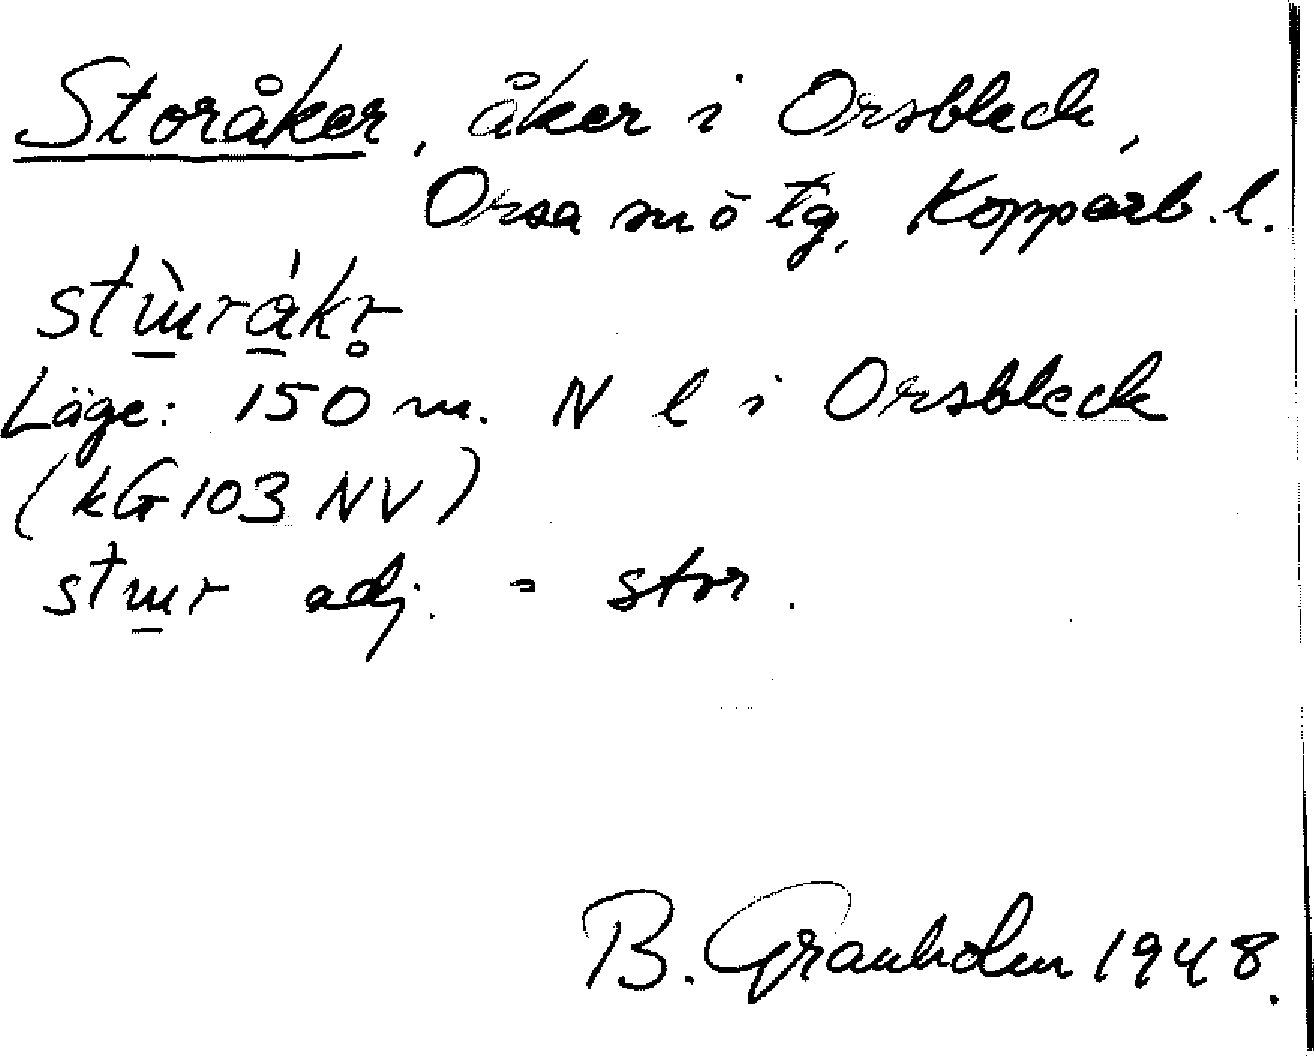 Storåker, åker i Orsbleck,
Orsa sn ö tg, Kopparb. l.
stɯ̱̀rá̱kr̥
Läge: 150 m. N l i Orsbleck
(kG103 NV)
stɯ̱r adj. = stor.
B. Granholm 1948.